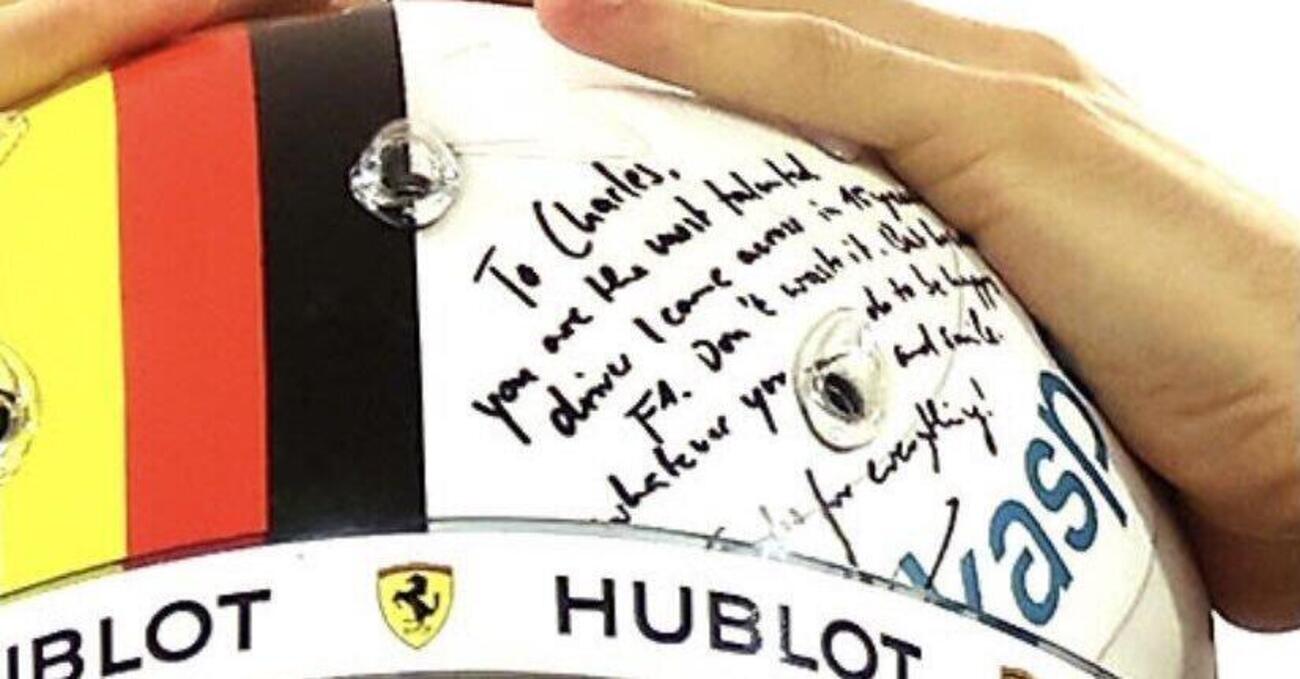 To Charles,
you are the most talented
driver I came across in 15 years
F1. Don't waste it. But
whatever you do to be happy
and smile.
for everything!
Kasp
UBLOT
HUBLOT